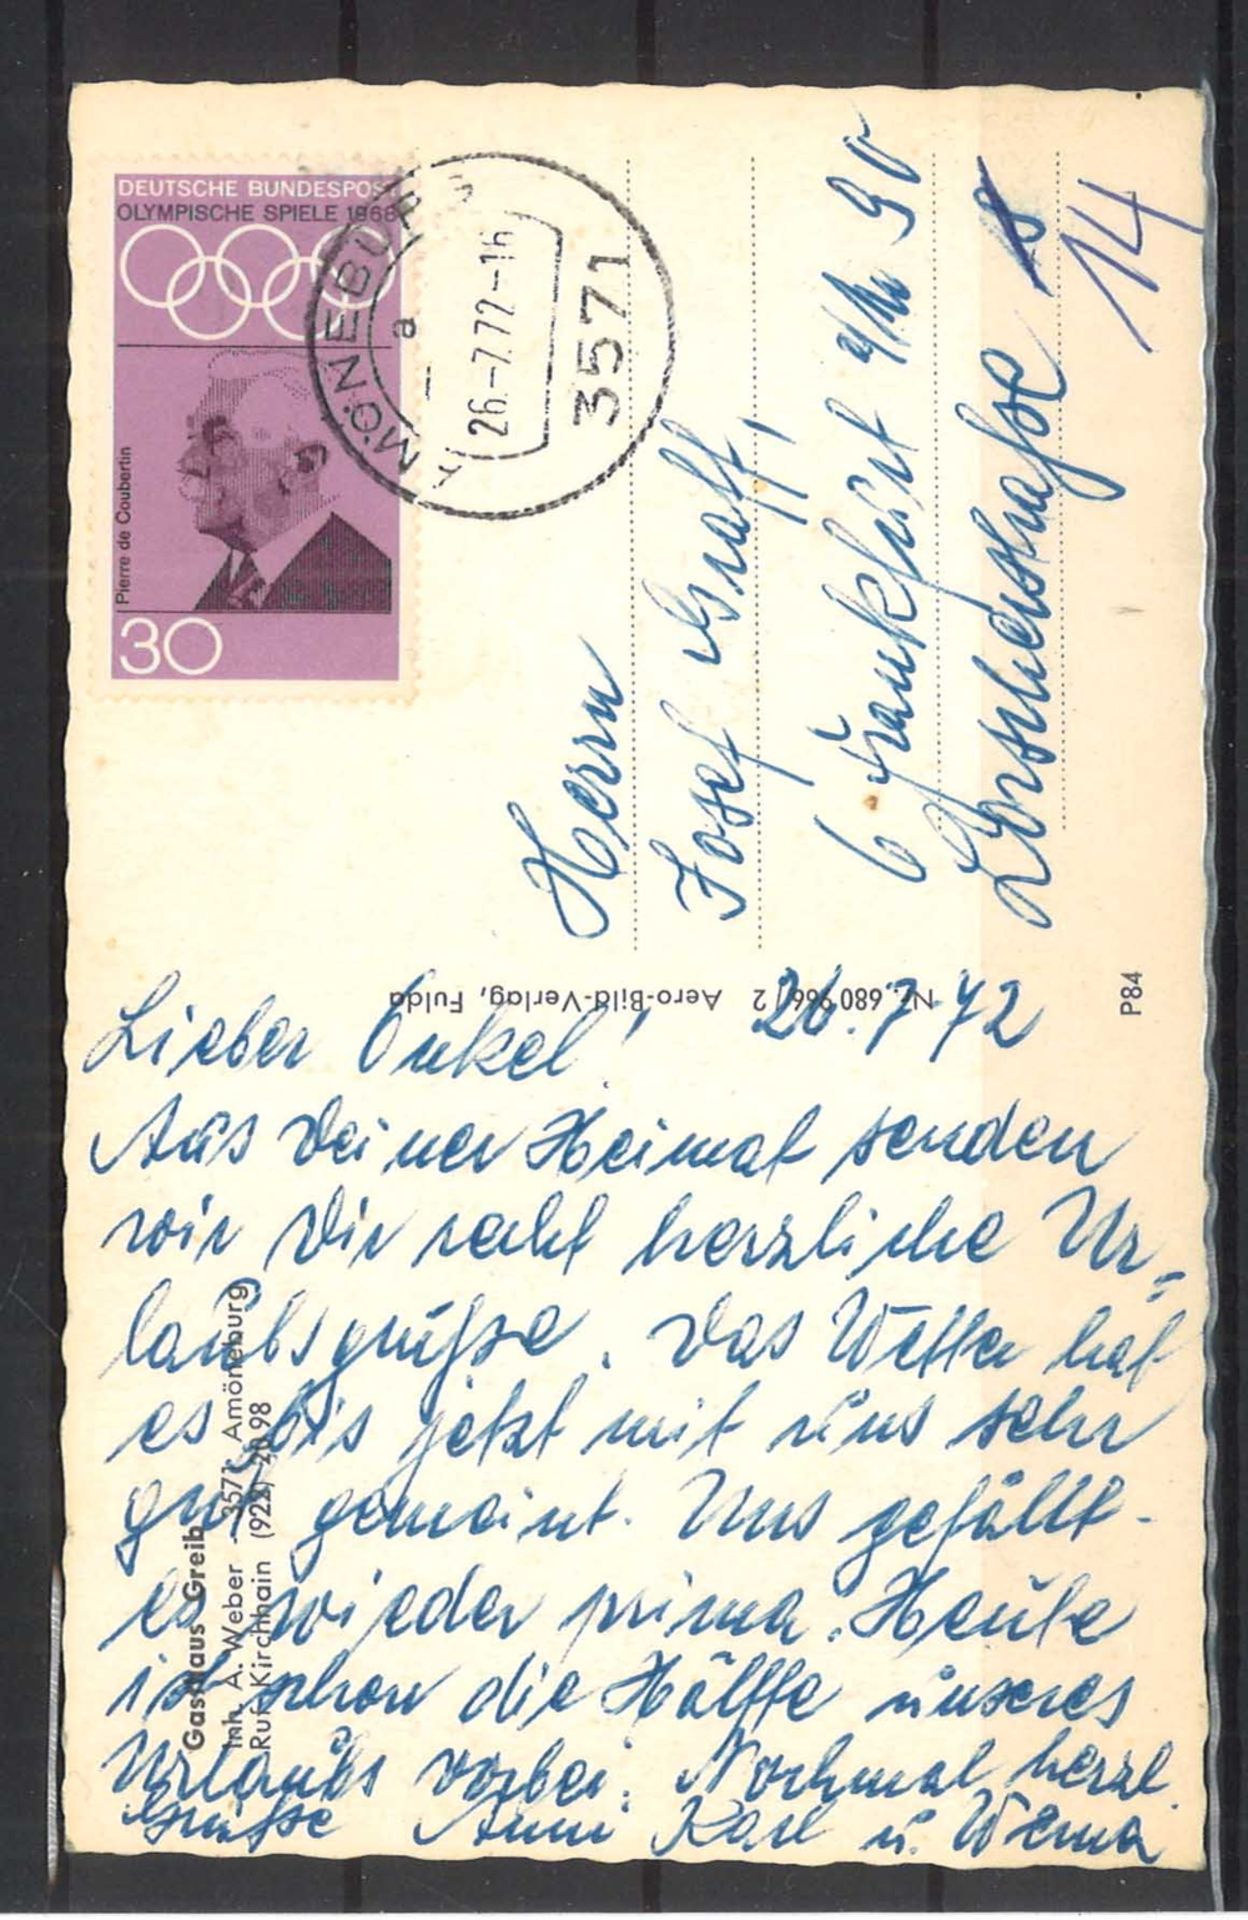 DEUTSCHE BUNDESPOS
OLYMPISCHE SPIELE 1968
Pierre de Coubertin
30
AMÖNEBURG
a
26.-7.72-16
3571
Herrn
Josef Graff,
6 Frankfurt a/M 90
14
Nr. 680 966/2 Aero-Bild-Verlag, Fulda
P84
Gasthaus Greib
Inh. A. Weber - 3571 Amöneburg
Ruf Kirchhain
Lieber Onkel! 26.7.72
Aus Deiner Heimat senden
wir Dir recht herzliche Ur=
laubsgrüße. Das Wetter hat
es bis jetzt mit uns sehr
gut gemeint. Uns gefällt
es wieder prima. Heute
ist schon die Hälfte unseres
Urlaubs vorbei. Nochmal herzl.
Grüße Anni Karl u.